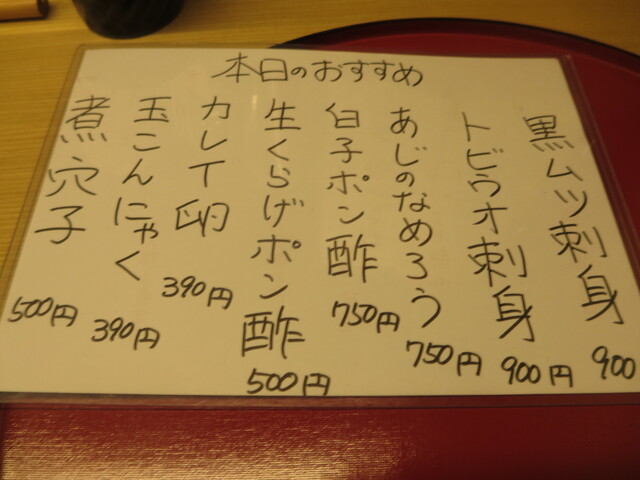 本日のおすすめ
黒ムツ刺身 900
トビウオ刺身 900円
あじのなめろう 750円
白子ポン酢 750円
生くらげポン酢 500円
カレイ卵 390円
玉こんにゃく 390円
煮穴子 500円